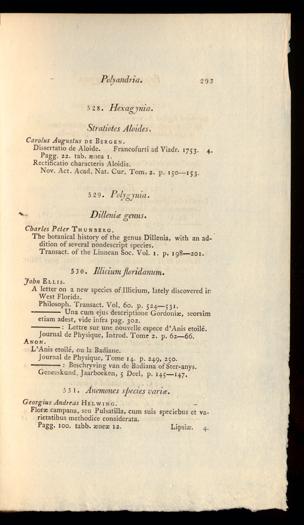 Polyandria. 293
528. Hexagynia.
Stratiotes Aloides.
Carolus Augustus DE BERGEN.
Dissertatio de Aloide. Francofurti ad Viadr. 1753. 4.
Pagg. 22. tab. ænea 1.
Rectificatio characteris Aloidis.
Nov. Act. Acad. Nat. Cur. Tom. 2. p. 150—153.
529. Polygynia.
Dilleniæ genus.
Charles Peter THUNBERG.
The botanical history of the genus Dillenia, with an ad-
dition of several nondescript species.
Transact. of the Linnean Soc. Vol. 1. p. 198—201.
530. Illicium floridanum.
John ELLIS.
A letter on a new species of Illicium, lately discovered in
West Florida.
Philosoph. Transact. Vol. 60. p. 524—531.
———— Una cum ejus descriptione Gordoniæ, seorsim
etiam adest, vide infra pag. 302.
————: Lettre sur une nouvelle espece d'Anis etoilé.
Journal de Physique, Introd. Tome 2. p. 62—66.
ANON.
L'Anis etoilé, ou la Badiane.
Journal de Physique, Tome 14. p. 249, 250.
————: Beschryving van de Badiana of Ster-anys.
Geneeskund. Jaarboeken, 5 Deel, p. 145—147.
531. Anemones species variæ.
Georgius Andreas HELWING.
Floræ campana, seu Pulsatilla, cum suis speciebus et va-
rietatibus methodice considerata.
Pagg. 100. tabb. æneæ 12. Lipsiæ. 4.